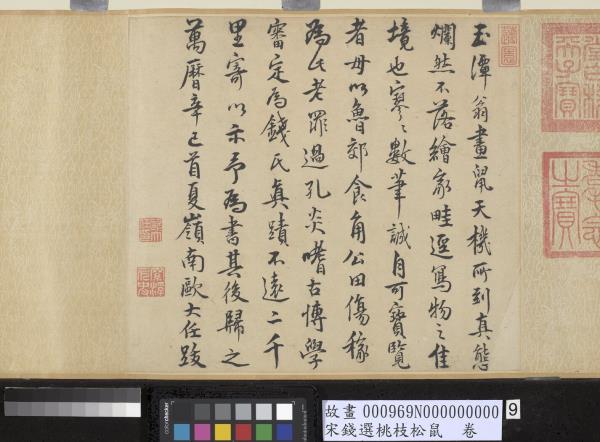 玉潭翁畫鼠天機所到真態
爛然不落繪家畦逕寫物之佳
境也寥〻數筆誠自可寶覽
者毋以魯郊食角公田傷稼
為此老罪過孔炎嗜古博學
審定為錢氏真蹟不遠二千
里寄以示予為書其後歸之
萬曆辛巳首夏嶺南歐大任跋
故畫 000969N000000000
宋錢選桃枝松鼠 卷
9